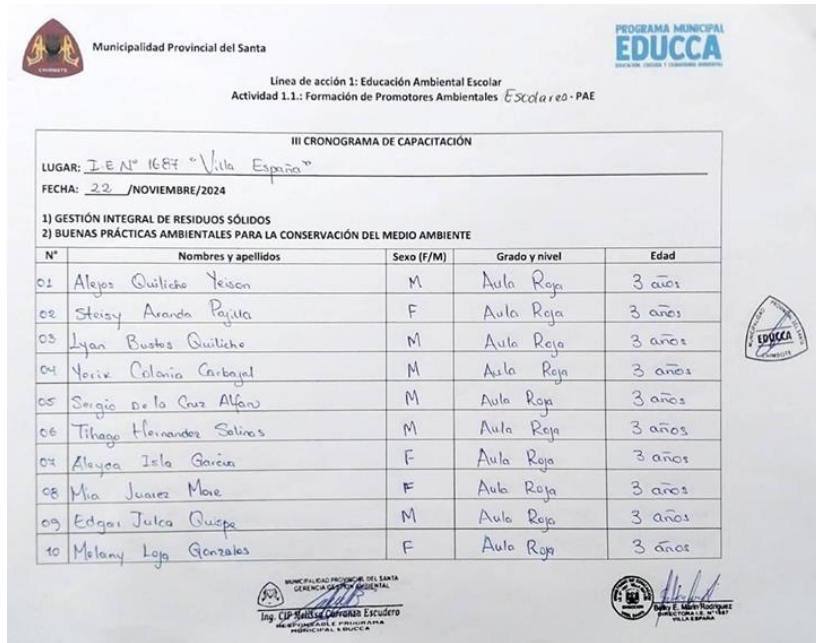 CHIMBOTE
Municipalidad Provincial del Santa
PROGRAMA MUNICIPAL
EDUCCA
EDUCACIÓN, CULTURA Y CIUDADANÍA AMBIENTAL
Línea de acción 1: Educación Ambiental Escolar
Actividad 1.1.: Formación de Promotores Ambientales Escolares - PAE
III CRONOGRAMA DE CAPACITACIÓN
LUGAR: I.E N° 1687 "Villa España"
FECHA: 22 /NOVIEMBRE/2024
1) GESTIÓN INTEGRAL DE RESIDUOS SÓLIDOS
2) BUENAS PRÁCTICAS AMBIENTALES PARA LA CONSERVACIÓN DEL MEDIO AMBIENTE
N° Nombres y apellidos Sexo (F/M) Grado y nivel Edad
01 Alejos Quiliche Yeison M Aula Roja 3 años
02 Steisy Aranda Pajilla F Aula Roja 3 años
03 Lyan Bustos Quiliche M Aula Roja 3 años
04 Yorix Colonia Carbajal M Aula Roja 3 años
05 Sergio De la Cruz Alfaro M Aula Roja 3 años
06 Tihago Hernandez Salinas M Aula Roja 3 años
07 Aleyda Isla Garcia F Aula Roja 3 años
08 Mia Juarez More F Aula Roja 3 años
09 Edgar Julca Quispe M Aula Roja 3 años
10 Melany Loja Gonzales F Aula Roja 3 años
MUNICIPALIDAD PROVINCIAL DEL SANTA
EDUCCA
CHIMBOTE
MUNICIPALIDAD PROVINCIAL DEL SANTA
GERENCIA GESTIÓN AMBIENTAL
Ing. CIP Melissa Carranza Escudero
RESPONSABLE PROGRAMA
MUNICIPAL EDUCCA
Betky E. Marin Rodriguez
DIRECTORA I.E. N° 1687
VILLA ESPAÑA